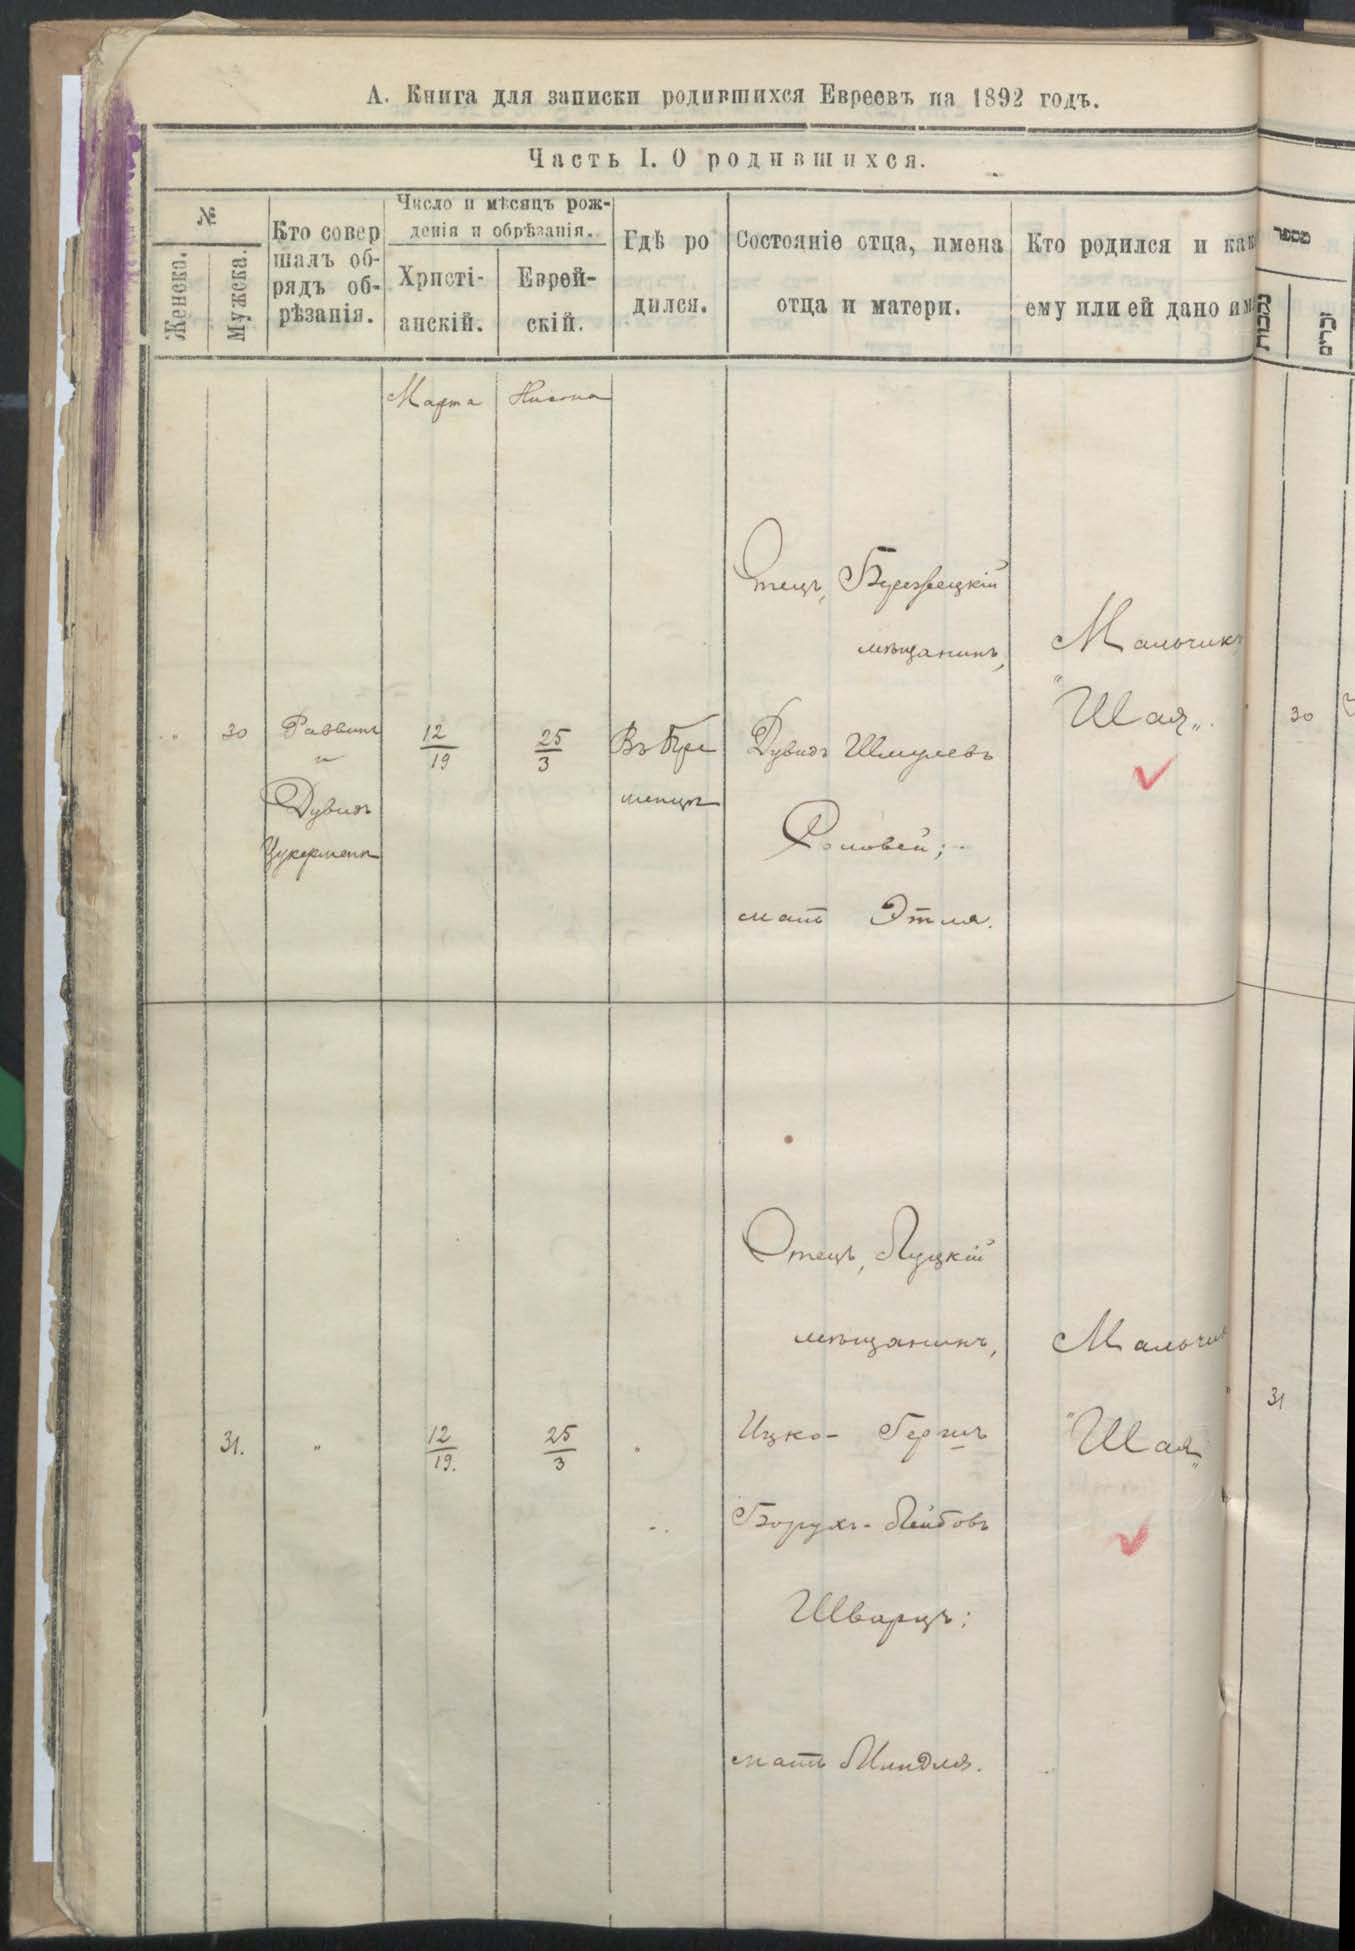 А. Книга для записки родившихся Евреевъ на 1892 годъ.
Часть I. О родившихся.
№
Женска.
Мужска.
Кто совер
шалъ об-
рядъ об-
рѣзанія.
Число и мѣсяцъ рож-
денія и обрѣзанія.
Христі-
анскій.
Еврей-
скій.
Гдѣ ро
дился.
Состояніе отца, имена
отца и матери.
Кто родился и как
ему или ей дано им
מספר
נקבות
זכרים
Марта
Нисона
30
Раввинъ
и
Дувидъ
Цукерманъ
12
19
25
3
Въ Кре
менцѣ
Отецъ,
мѣщанинъ,
Дувидъ Шмулевъ
мать Этля.
Мальчикъ
"Шая„.
30
31.
"
12
19.
25
3
Отецъ, Луцкій
мѣщанинъ,
Ицко- Гершъ
Борухъ-Лейбовъ
Шварцъ;
мать Миндля.
Мальчик
"Шая„
31